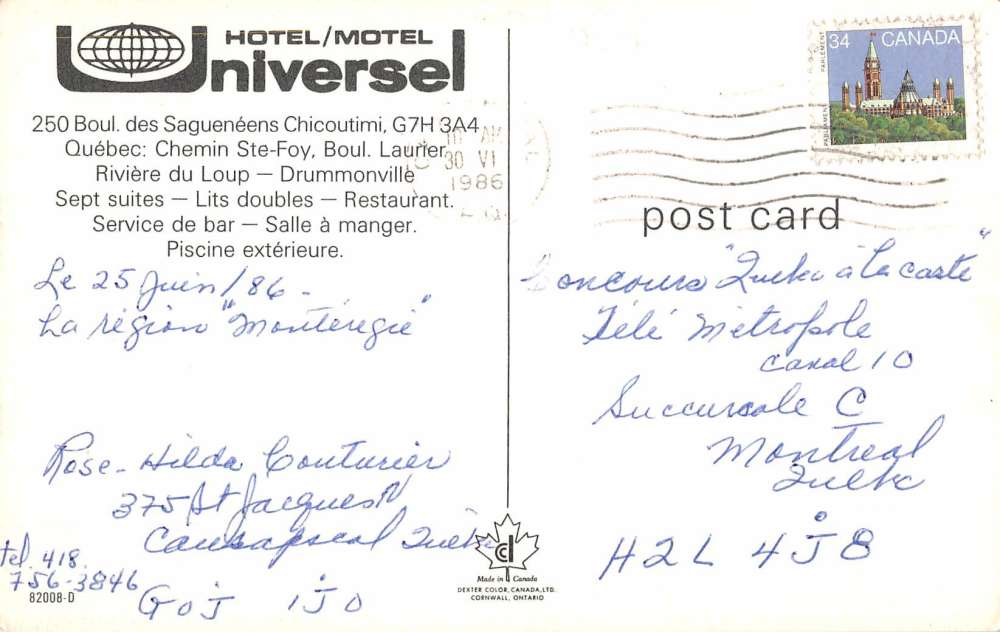 HOTEL/MOTEL
Universel
250 Boul. des Saguenéens Chicoutimi, G7H 3A4
Québec: Chemin Ste-Foy, Boul. Laurier
Rivière du Loup — Drummonville
Sept suites — Lits doubles — Restaurant.
Service de bar — Salle à manger.
Piscine extérieure.
Le 25 Juin/86 -
La région "Montérégie"
Rose-Hilda Couturier
375 St Jacques N
Causapscal Québec
tel. 418.
756-3846
G0J 1J0
82008-D
34 CANADA
PARLEMENT
PARLIAMENT
AM
30 VI
1986
post card
Concours "Québec à la carte"
Télé Métropole
canal 10
Succursale C
Montreal
Québec
H2L 4J8
CCL
Made in Canada
DEXTER COLOR, CANADA, LTD.
CORNWALL, ONTARIO